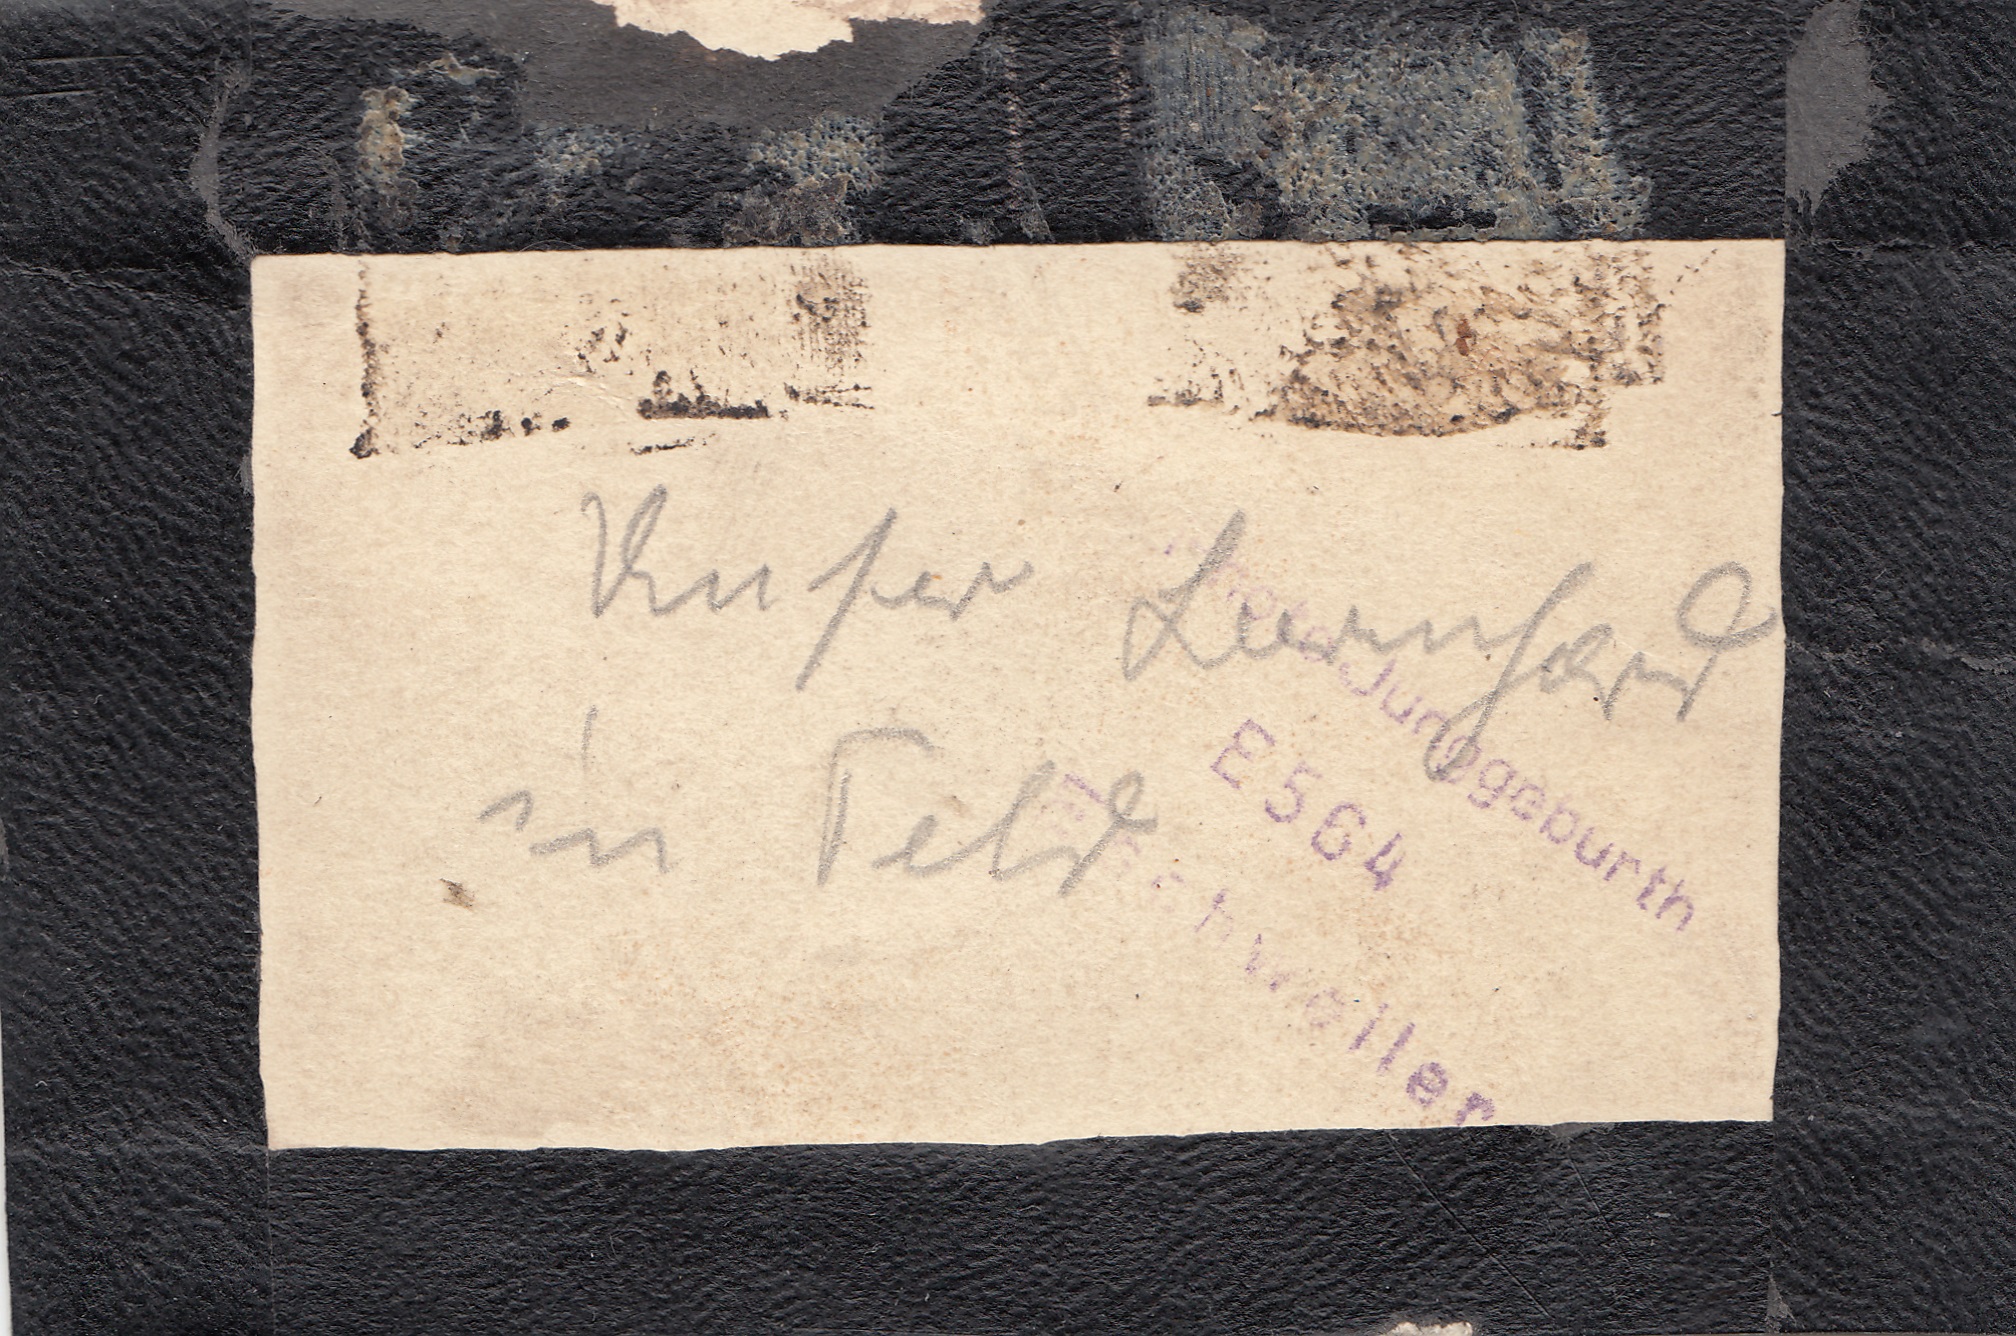 Unser Bernhard
in Feld
Junggeburth
E 564
Eschweiler